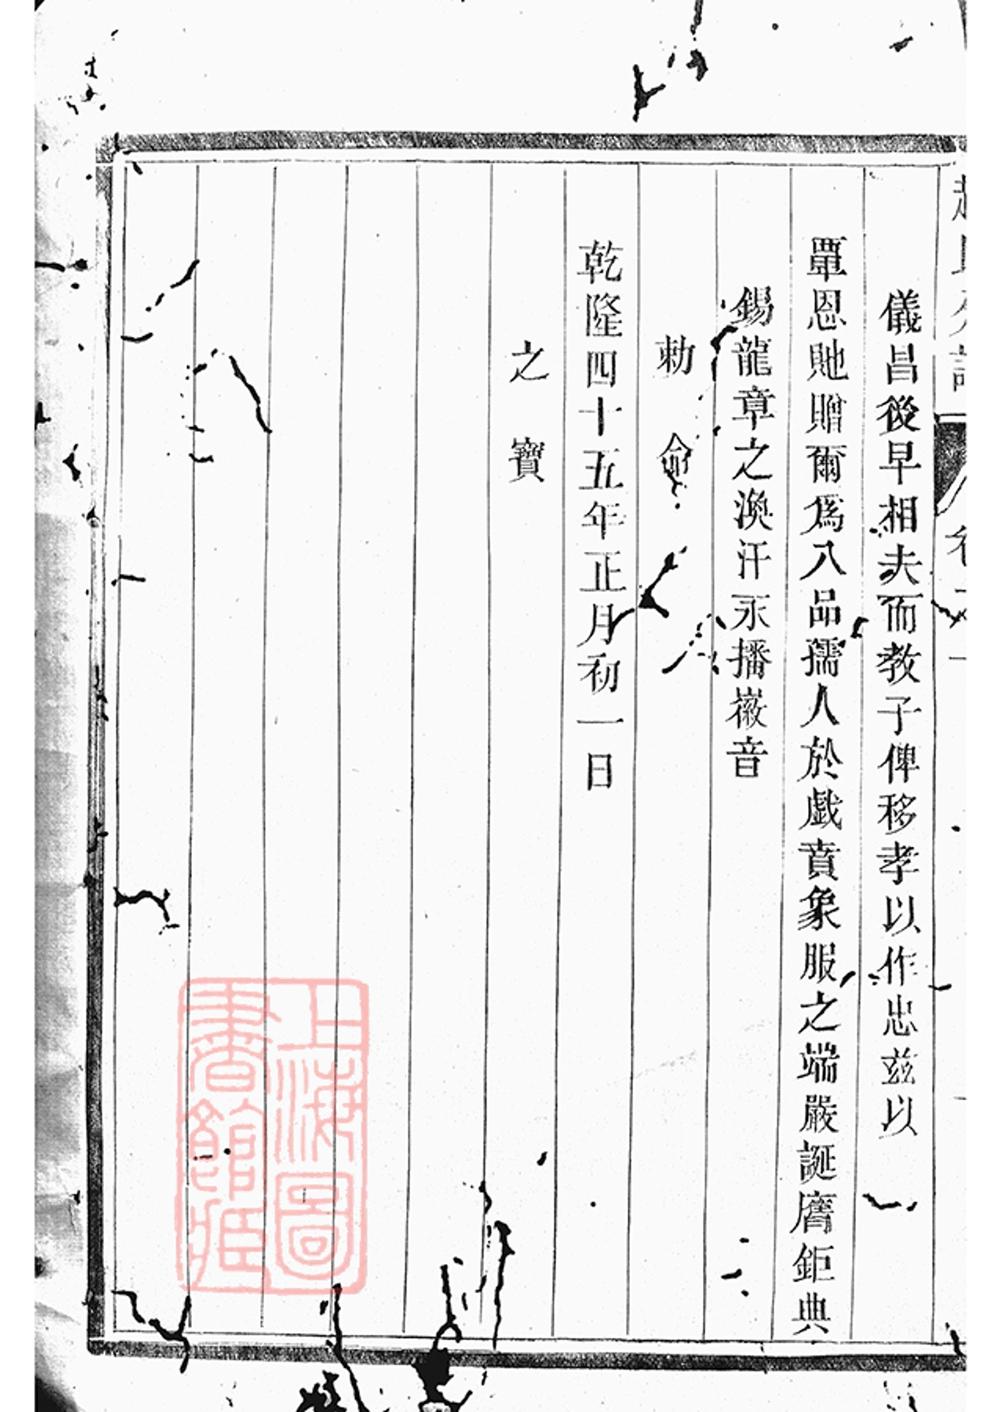 儀昌後早相夫而教子俾移孝以作忠茲以
覃恩貤贈爾爲八品孺人於戲賁象服之端嚴誕膺鉅典
錫龍章之渙汗永播徽音
勅命
乾隆四十五年正月初一日
之寶
上海圖
書館藏